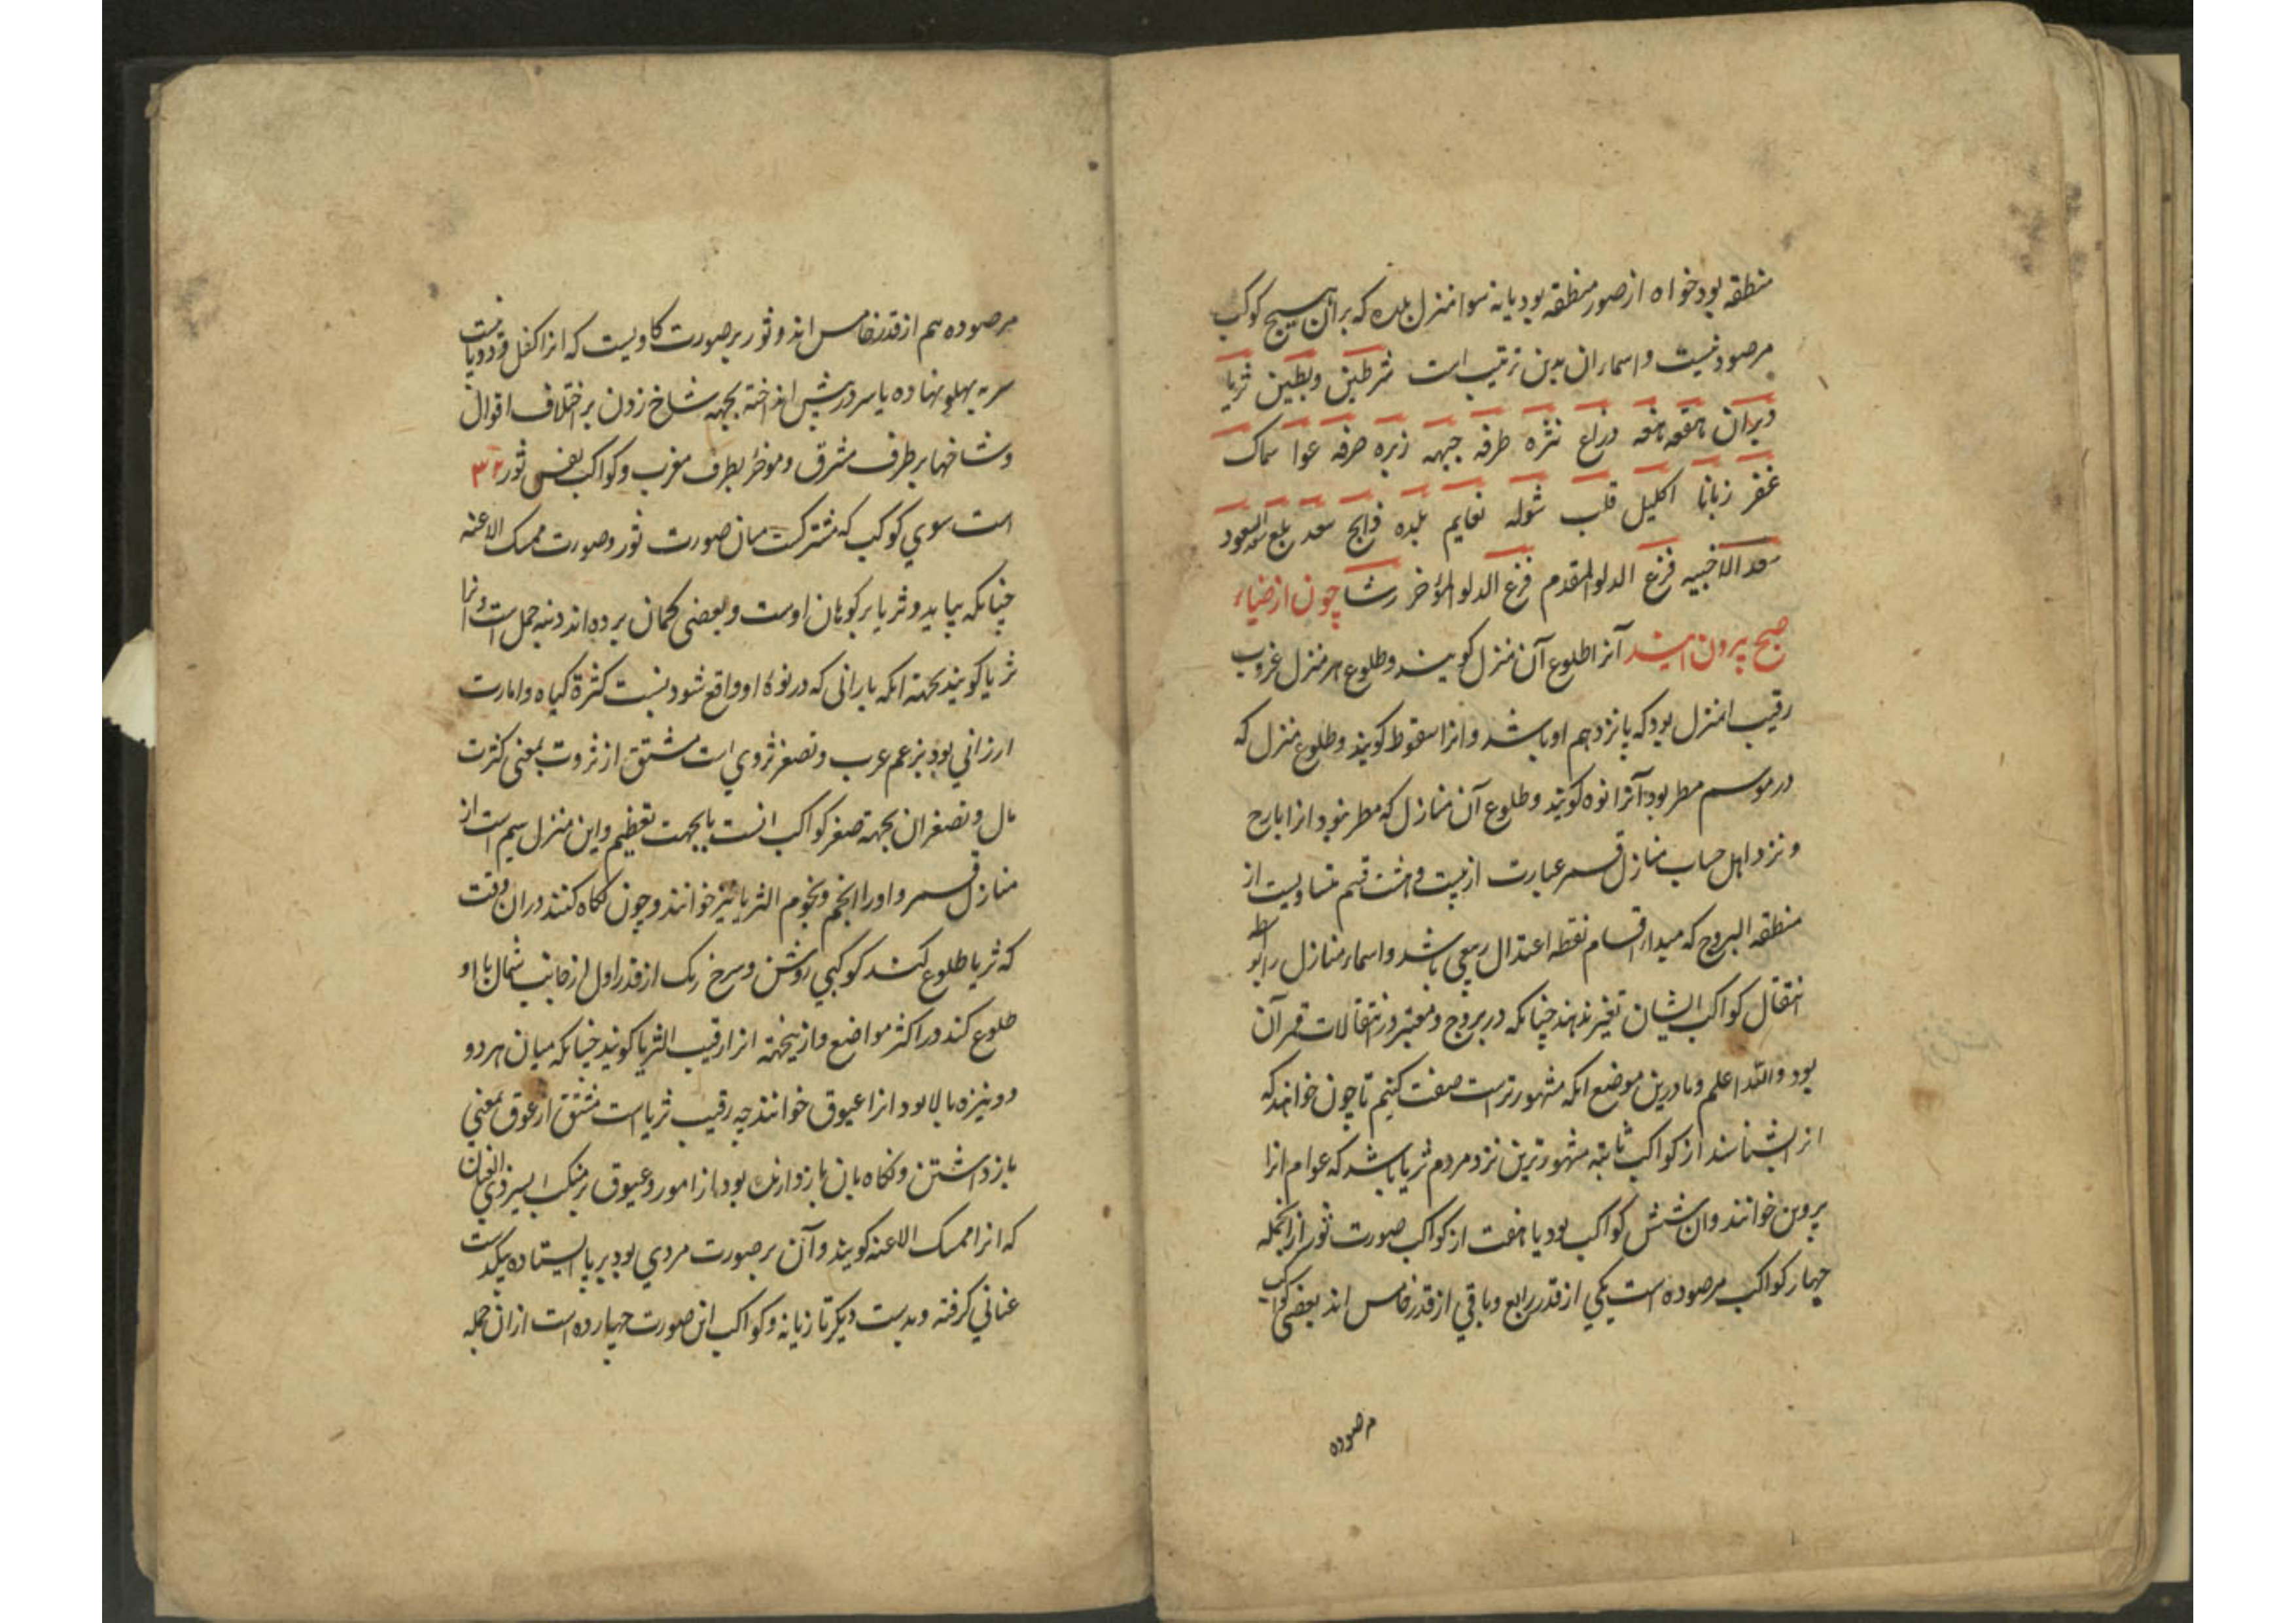 منطقه بود خواه از صور منطقه بود یا نه سوا منزل بلده که بران هیچ کوکب
مرصود نیست و اسماء ران بدین ترتیب است شرطین و بطین ثریا
دبران هقعه هنعه ذراع نثره طرفه جبهه زبره صرفه عوا سماک
غفر زبانا اکلیل قلب شوله نعایم بلده ذابح سعد بلع السعود
سعد الاخبیه فرغ الدلو المقدم فرغ الدلو المؤخر رشا چون از ضیاء
صبح بیرون آیند آنرا طلوع آن منزل کویند و طلوع هر منزل غروب
رقیب ا منزل بود که پانزدهم او باشد و انرا سقوط کویند و طلوع منزل که
در موسم مطر بود آنرا نوه کویند و طلوع آن منازل که مطر نبود انرا بارح
و نزد اهل حساب منازل قمر عبارت از بیست و هشت قسم متساویست از
منطقه البروج که مبداء اقسام نقطه اعتدال ربیعی باشد و اسماء منازل را بواسطه
انتقال کواکب ایشان تغیر ندهند چنانکه در بروج و معتبر در انتقالات قمر آن
بود والله اعلم و ما درین موضع انکه مشهورتر است صفت کنیم تا چون خواهند که
انرا بشناسند از کواکب ثابته مشهورترین نزد مردم ثریا باشد که عوام انرا
پروین خوانند و ان شش کواکب بود یا هفت از کواکب صورت ثور از انجمله
چهار کواکب مرصوده است یکی از قدر رابع و باقی از قدر خامس اند بعضی کواکب
مرصوده
مرصوده هم از قدر خامس اند و ثور بر صورت کاویست که انرا کفل و دو پا نیست
سر به پهلو نهاده یا سر در پیش انداخته بجهه شاخ زدن بر اختلاف اقوال
و شاخها بر طرف مشرق و موخر بطرف مغرب و کواکب نفس ثور ۳۲
است سوی کوکب که مشترکست میان صورت ثور و صورت ممسک الاعنه
چنانکه بیاید و ثریا بر کوهان اوست و بعضی کمان برده اند دنبه حمل است و انرا
ثریا کویند بجهته انکه بارانی که در نوه او واقع شود نسبت کثرة کیاه و امارت
ارزانی بود بزعم عرب و تصغر ثروی است مشتق از ثروت بمعنی کثرت
مال و تصغر ان بجهته صغر کواکب انست یا بجهت تعظیم و این منزل سیم است از
منازل قمر و او را النجم و نجوم الثریا نیز خوانند و چون نکاه کنند در ان وقت
که ثریا طلوع کند کوکبی روشن و سرخ رنک از قدر اول از جانب شمال با او
طلوع کند در اکثر مواضع و ازینجهته انرا رقیب الثریا کویند چنانکه میان هر دو
دو نیزه بالا بود انرا عیوق خوانند چه رقیب ثریا است مشتق از عوق بمعنی
بازداشتن و نکاه بان باز دارنده بود از امور و عیوق بر منکب ایسر ذی العنان
که انرا ممسک الاعنه کویند و آن بر صورت مردی بود بر پا ایستاده بیکدست
عنانی کرفته و بدست دیکر تازیانه و کواکب این صورت چهارده است از ان جمله